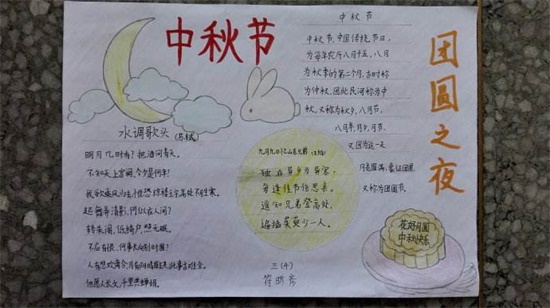 中秋节
团圆之夜
中秋节
中秋节,中国传统节日,
为每年农历八月十五,八月
为秋季的第二个月,古时称
为仲秋,因此民间称为中
秋,又称为秋夕,八月节,
八月半,月夕,月节,
又因为这一天
月亮满圆,象征团圆,
又称为团圆节。
水调歌头
明月几时有?把酒问青天。
不知天上宫阙,今夕是何年?
我欲乘风归去,惟恐琼楼玉宇,高处不胜寒。
起舞弄清影,何似在人间?
转朱阁,低绮户,照无眠。
不应有恨,何事长向别时圆?
人有悲欢离合,月有阴晴圆缺,此事古难全。
但愿人长久,千里共婵娟。
九月九日忆山东兄弟
独在异乡为异客,
每逢佳节倍思亲。
遥知兄弟登高处,
遍插茱萸少一人。
三(4)
花好月圆
中秋快乐